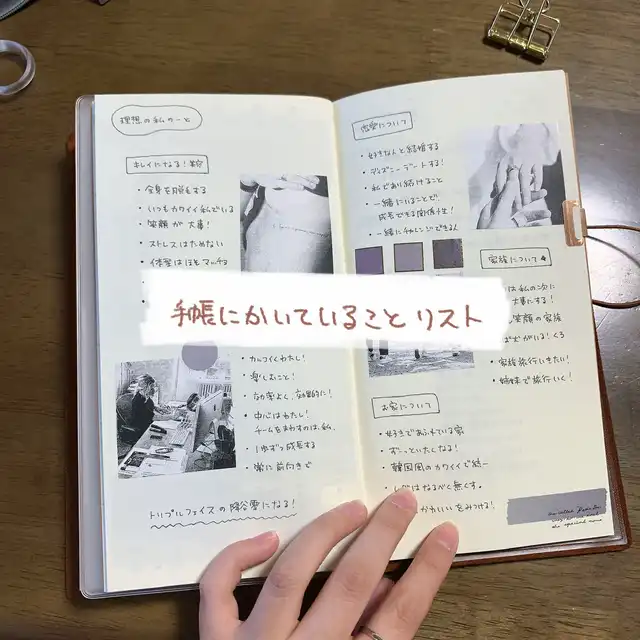 理想の私のーと
キレイになる!
・全身を脱毛する
・いつもカワイイ私でいる
・笑顔が大事!
・ストレスはためない
・体型はほどマッチョ
手帳にかいていること リスト
・カッコイくわたし!
・楽しむこと!
・効率よく、効果的に!
・中心はわたし!
チームをまわすのは私。
・1歩ずつ成長する
・常に前向きで
トリプルフェイスの
になる!
恋愛について
・好きな人と結婚する
・ディズニーデートする!
・私であり続けること
・一緒にいることで
成長できる関係性!
・一緒にチャレンジできる人
家族について
は私の次に
大事にする!
笑顔の家族
・家族旅行いきたい!
・姉妹で旅行いく!
お家について
・好きであふれている家
・ずーっといたくなる!
・韓国風のカワイイで統一
はなるべく無くす。
かわいいをみつける!